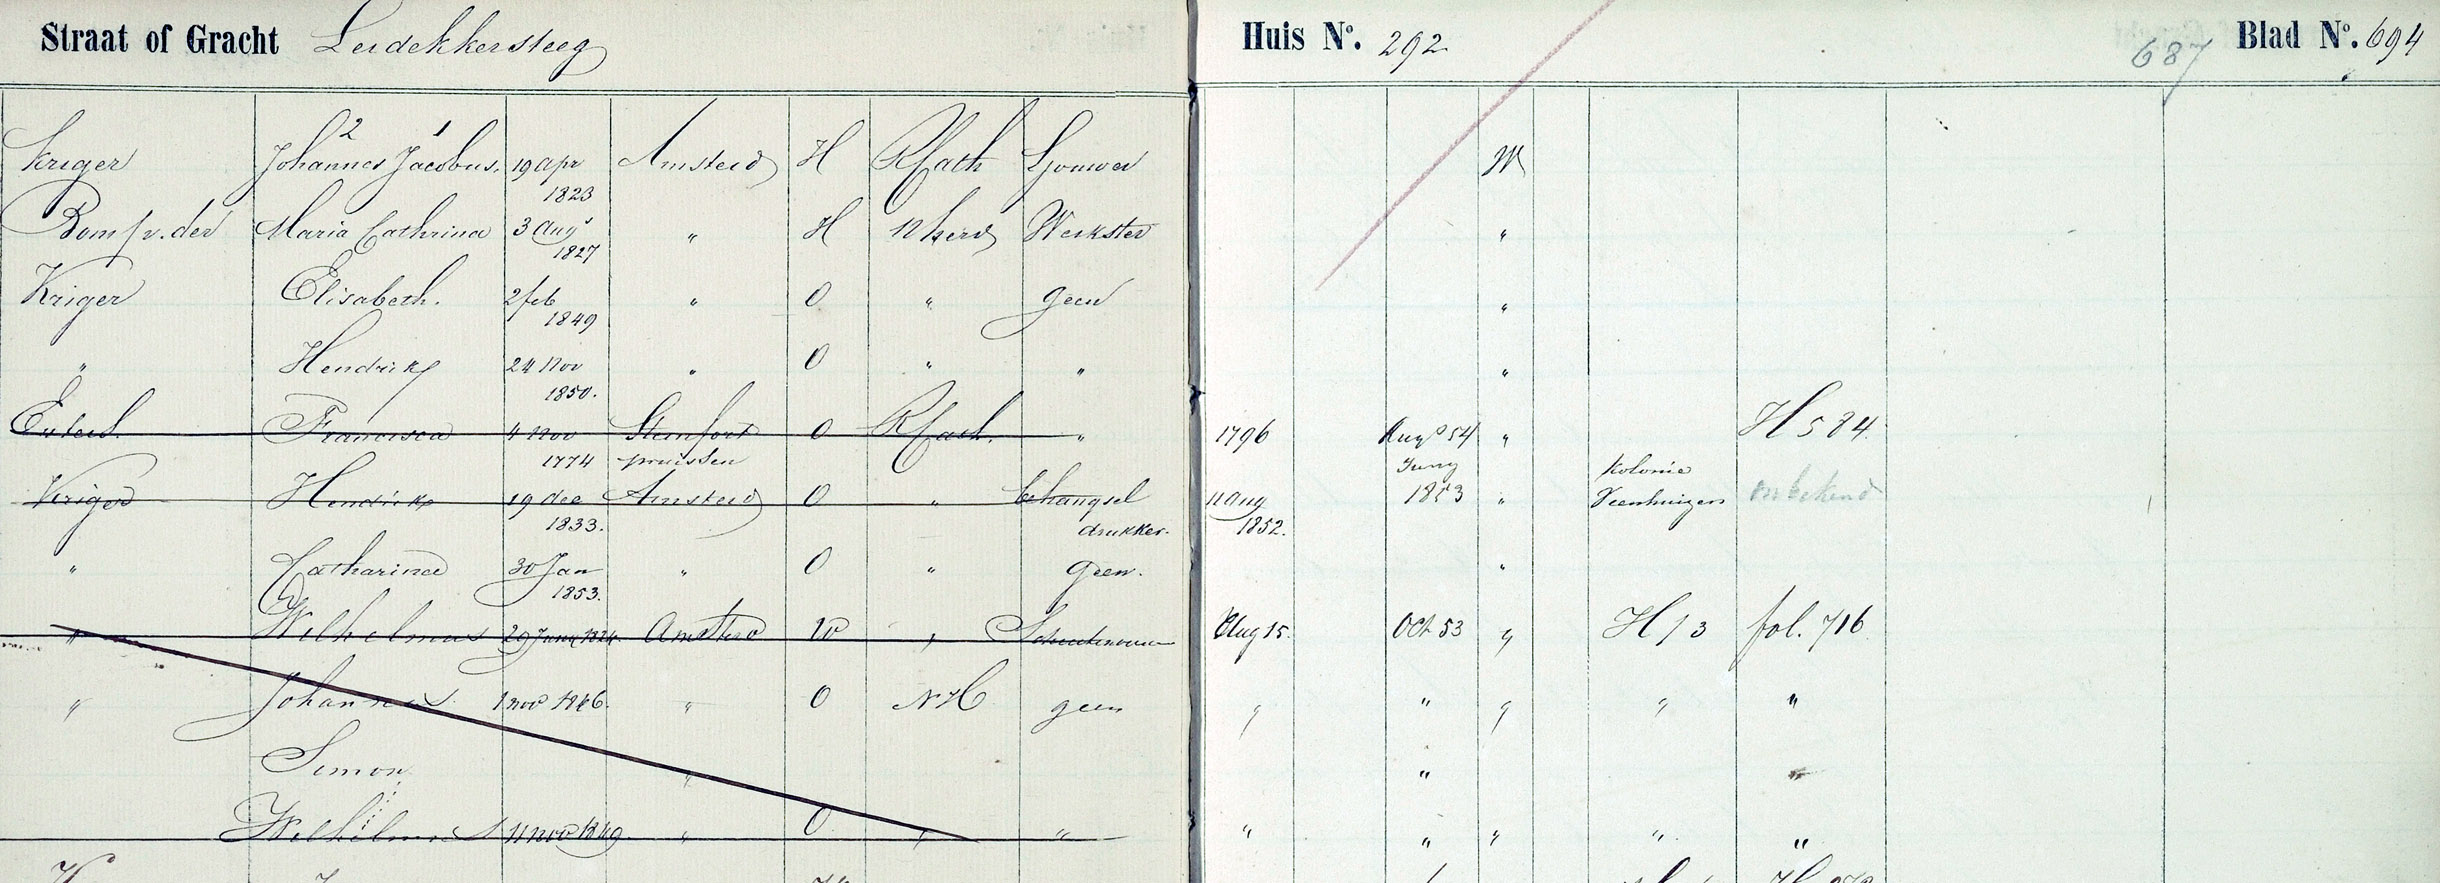 Straat of Gracht Leidekkersteeg Huis No. 292. 687 Blad No. 694
2 1
Kriger Johannes Jacobus. 19 apr Amsterd H RCath Sjouwer W
1823
Bom v. der Maria Cathrina 3 Aug " H N herv Werkster "
1827
Kriger Elisabeth. 2 feb " O " geen "
1849
" Hendrik 24 Nov " O " " "
1850.
Francisca 4 Nov Steinfort O RCath. " 1796 Aug 54 " H 584.
1774 pruissen
Kriger Hendrik 19 dec Amsterd O " behangsel 11 Aug Juny 1853 " Kolonie Veenhuizen onbekend
1833. drukker. 1852.
" Catharina 30 Jan " O " geen. "
1853.
" Wilhelmus 29 Juny 1824 Amsterd W " Aug 15. Oct 53 " H 13 fol. 716
" Johannes 1 nov 1846. " O NH geen " " " " "
Simon " " "
Wilhelmus 11 nov 1849 " O " " " " " " "